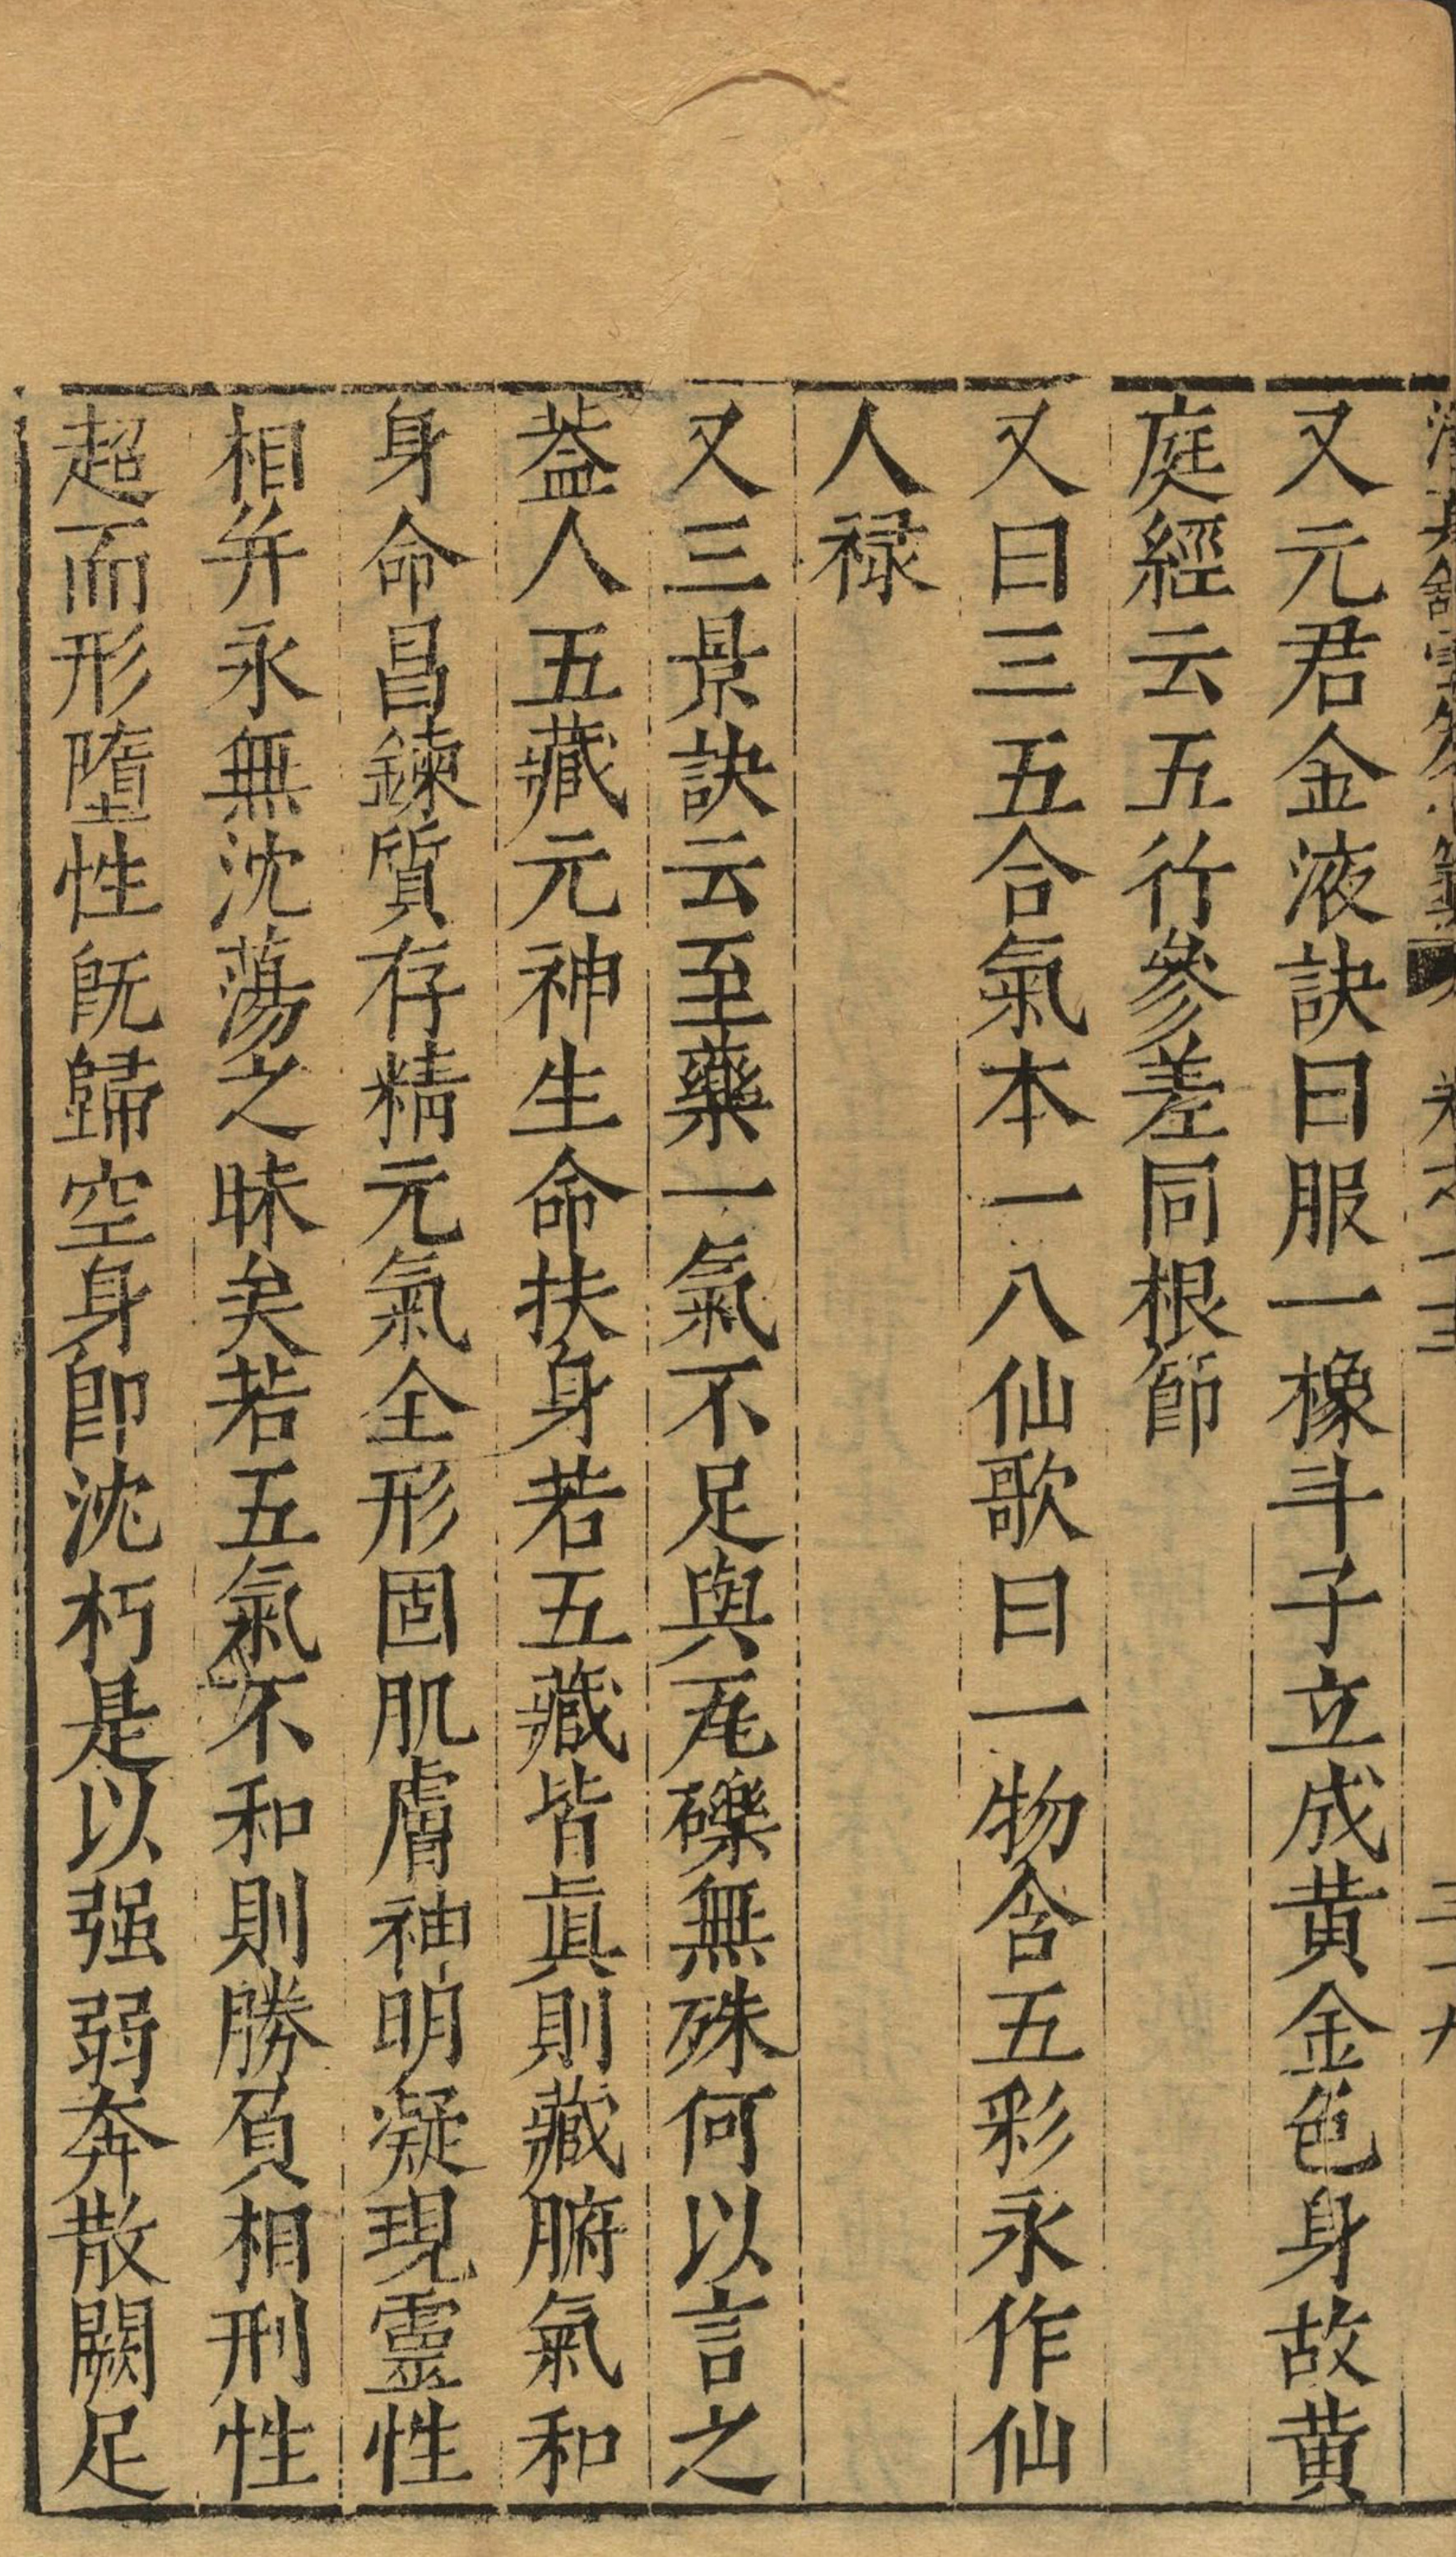 又元君金液訣曰服一橡斗子立成黄金色身故黄
庭經云五行參差同根節
又曰三五合氣本一八仙歌曰一物含五彩永作仙
人禄
又三景訣云至藥一氣不足與瓦礫無殊何以言之
葢人五藏元神生命扶身若五藏皆眞則藏腑氣和
身命昌鍊質存精元氣全形固肌膚神明凝現靈性
相并永無沈蕩之昧矣若五氣不和則勝負相刑性
超而形墮性旣歸空身卽沈朽是以强弱奔散闕足